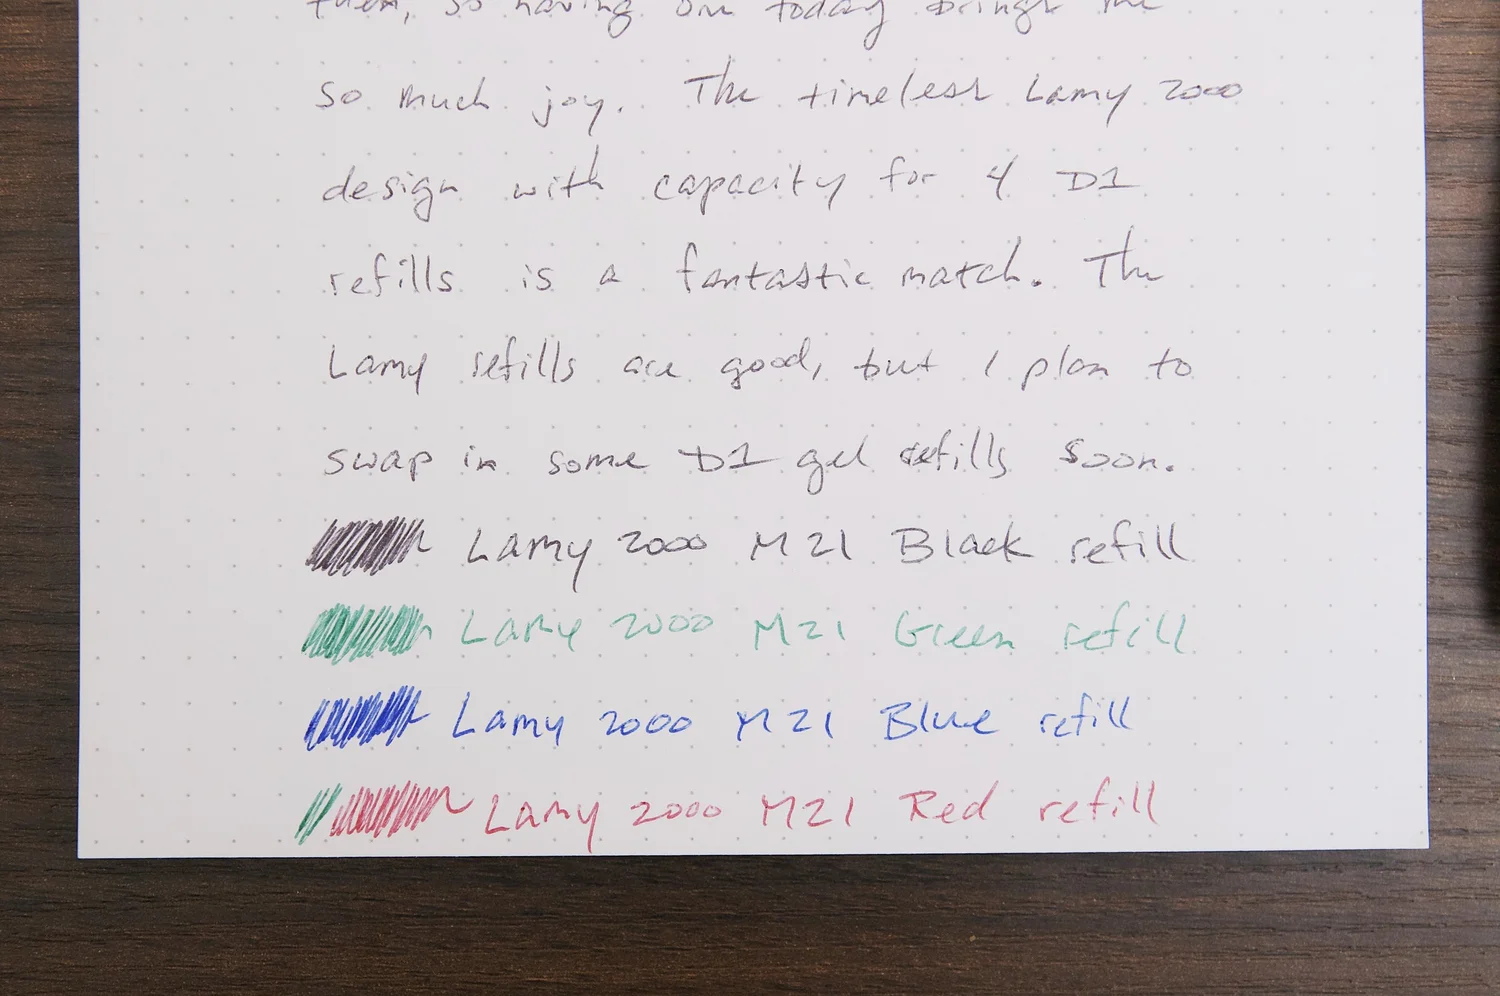 them, so having one today brings me
so much joy. The timeless Lamy 2000
design with capacity for 4 D1
refills is a fantastic match. The
Lamy refills are good, but I plan to
swap in some D1 gel refills soon.
Lamy 2000 M21 Black refill
Lamy 2000 M21 Green refill
Lamy 2000 M21 Blue refill
Lamy 2000 M21 Red refill